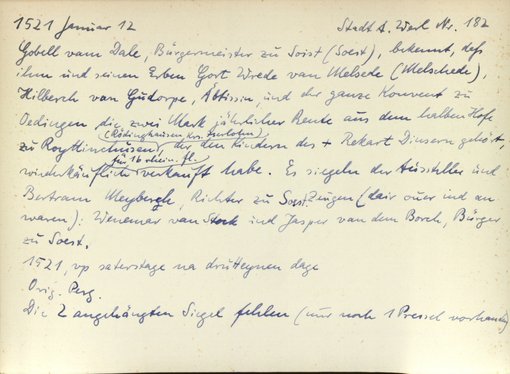 1521 Januar 12 Stadt A. Werl Nr. 182
Gobell vam Dale, Bürgermeister zu Soist (Soest), bekennt, daß
ihm und seinen Erben Gort Wrede van Melsede (Melschede),
Hilberch van Gudorpe, Äbtissin, und der ganze Konvent zu
Oedingen die zwei Mark jährlicher Rente aus dem halben Hofe
(Röllinghausen, Krs. Iserlohn)
zu, der den Kindern des + Rekart Dinseren gehört,
für 16 rhein. fl.
wiederkäuflich verkauft habe. Es siegeln der Aussteller und
Bertram Meybergh, Richter zu Soest. Zeugen (dair over ind an
waren): Wenemar van Sterk ind Jasper van dem Borch, Bürger
zu Soest.
1521, vp saterstage na drutteynen dage
Orig. Perg.
Die 2 angehängten Siegel fehlen (nur noch 1 Pressel vorhanden)